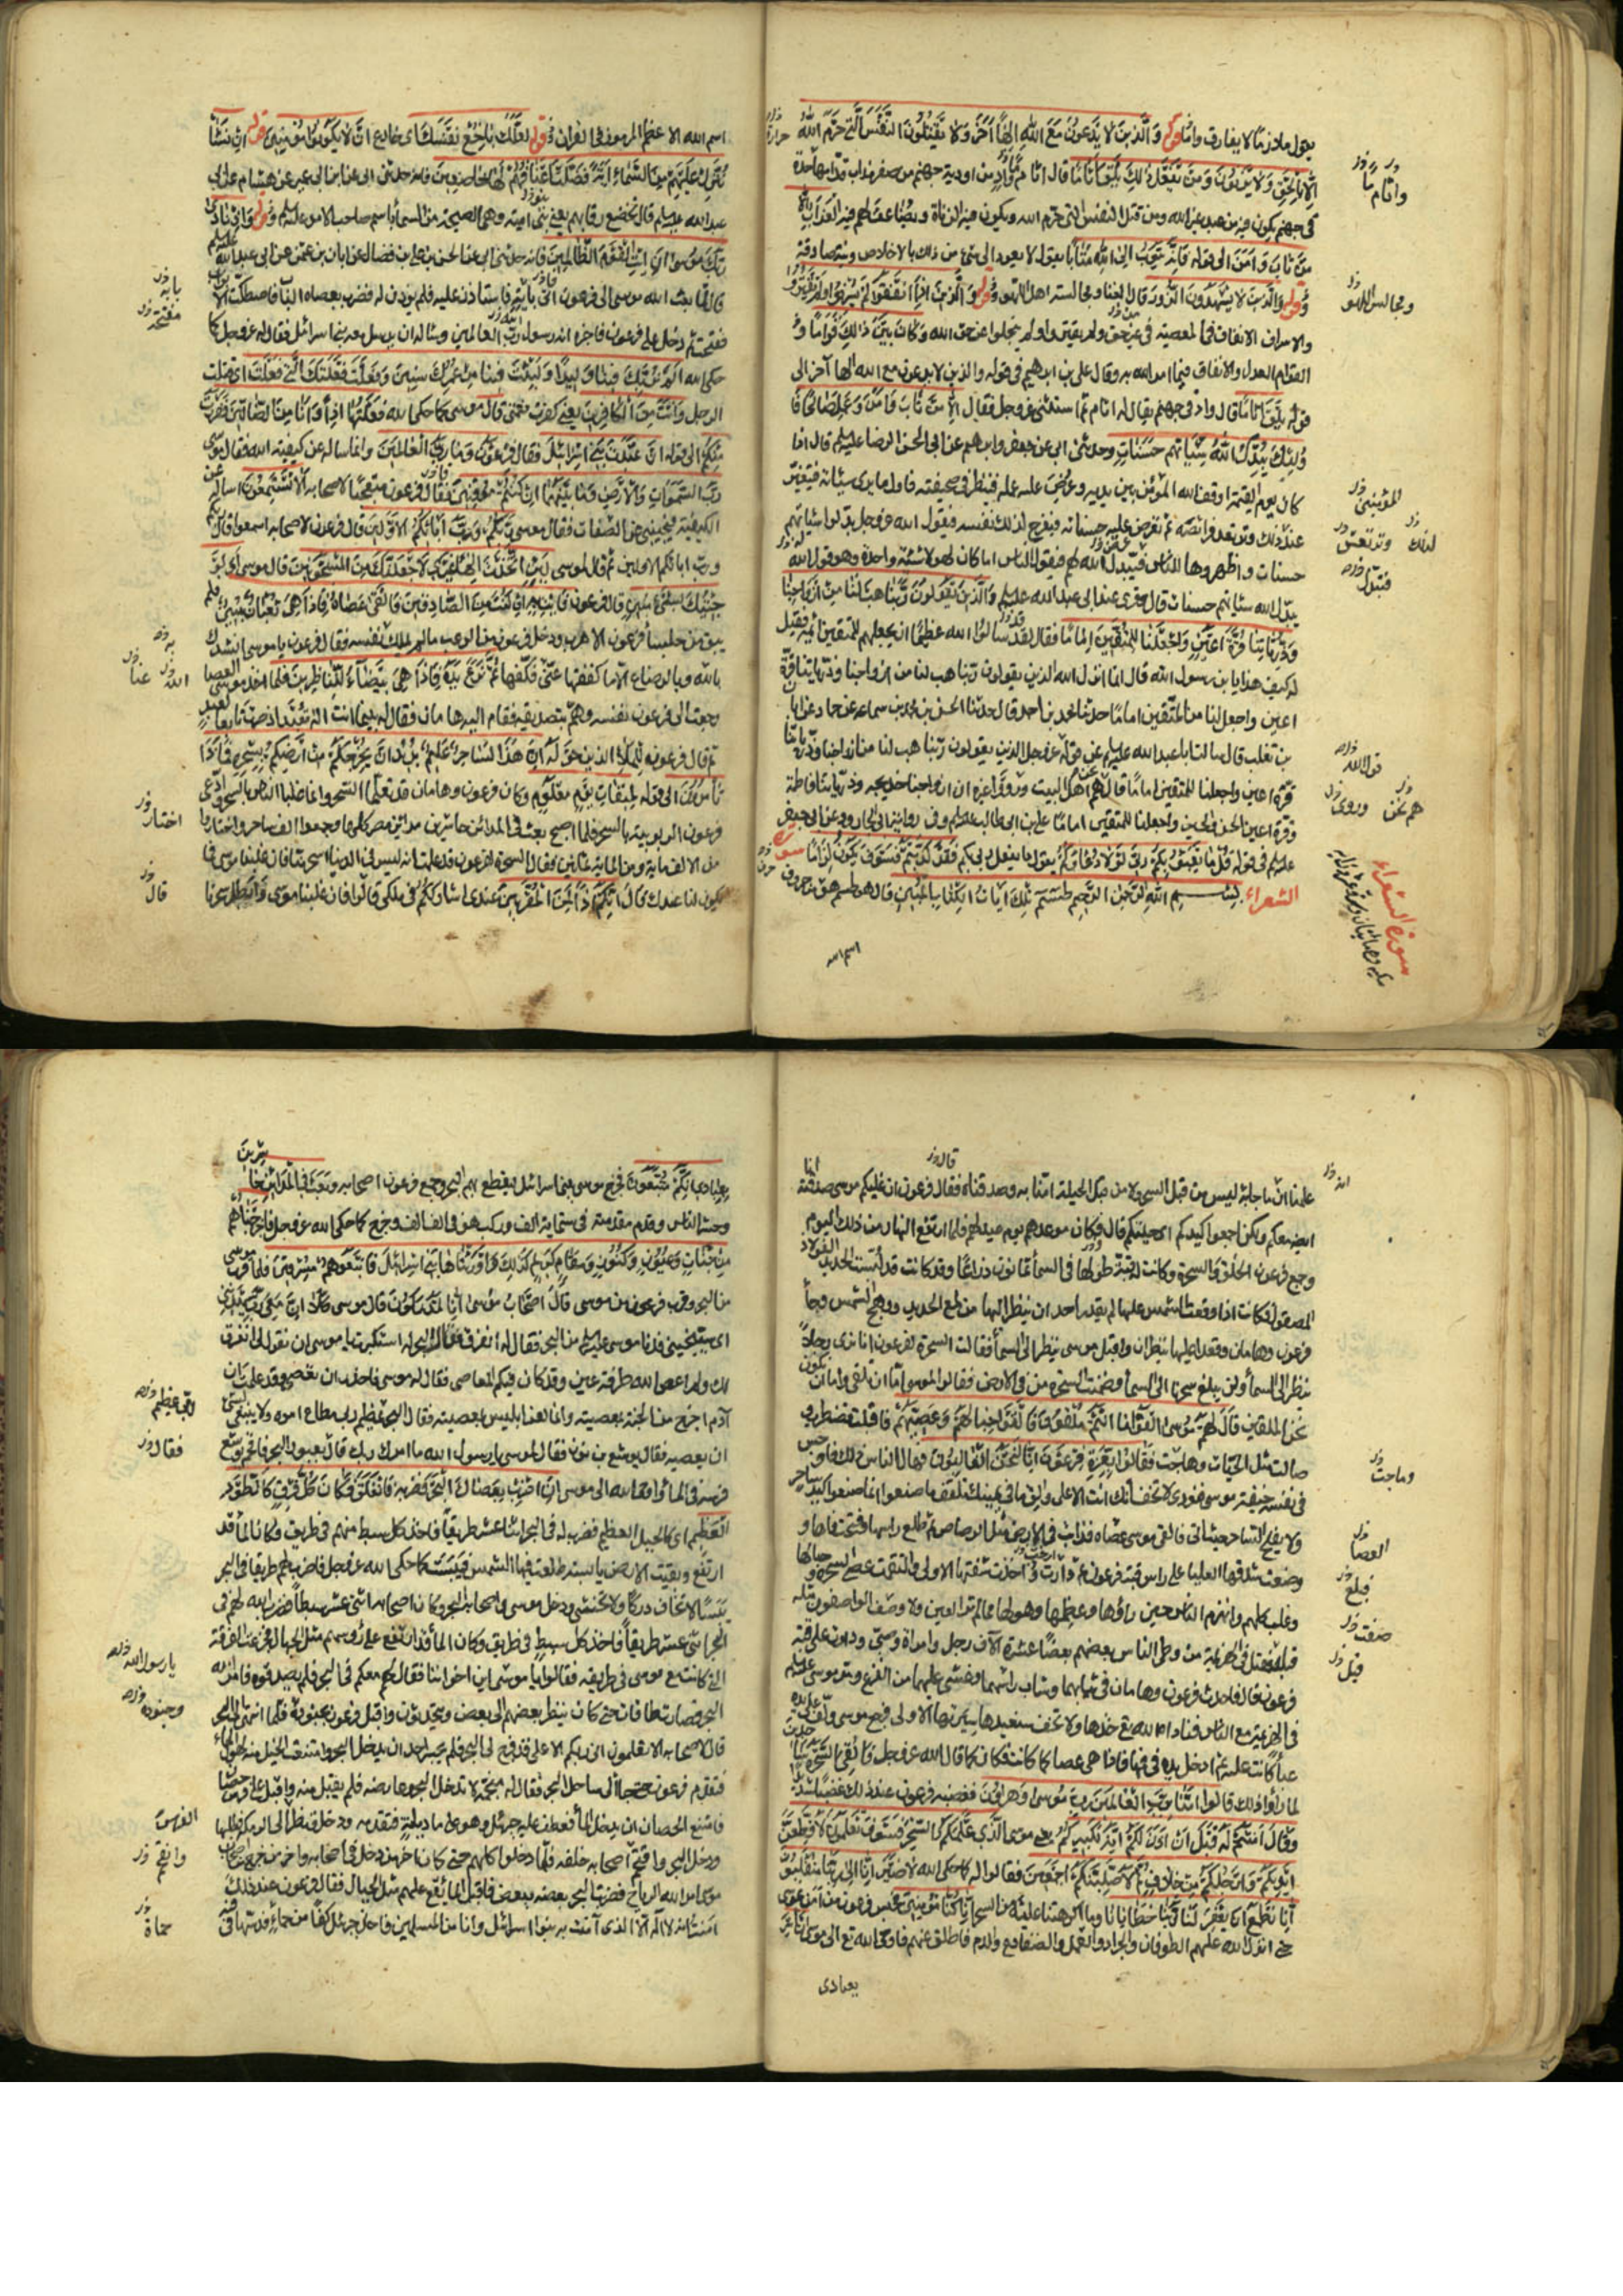 يقول ملازما لا يفارق وقوله والذين لا يدعون مع الله الها آخر ولا يقتلون النفس التي حرم الله
الا بالحق ولا يزنون ومن يفعل ذلك يلق اثاما قال اثام واد من اودية جهنم من صفر مذاب قدامها حدة
في جهنم يكون فيه من عبد غير الله ومن قتل النفس التي حرم الله ويكون فيه الزناة ويضاعف لهم فيه العذاب الا
من تاب وآمن الى قوله فانه يتوب الى الله متابا يقول لا يعود الى شئ من ذلك بالاخلاص ونية صادقة
وقوله والذين لا يشهدون الزور قال الغناء ومجالسة اهل اللهو وقوله والذين اذا انفقوا لم يسرفوا ولم يقتروا
والاسراف الانفاق في المعصية في غير حق ولم يقتروا لم يبخلوا عن حق الله وكان بين ذلك قواما و
القوام العدل والانفاق فيما امر الله به وقال علي بن ابرهيم في قوله والذين لا يدعون مع الله الها آخر الى
قوله يلق اثاما قال واد في جهنم يقال له اثام ثم استثنى عز وجل فقال الا من تاب وآمن وعمل صالحا فا
ولئك يبدل الله سيئاتهم حسنات وحدثني ابي عن جعفر وابرهيم عن ابي الحسن الرضا عليه السلم قال اذا
كان يوم القيمة اوقف الله المؤمن بين يديه وعرض عليه عمله فينظر في صحيفته فاول ما يرى سيئاته فيتغير
عند ذلك لونه وترتعد فرائصه ثم تعرض عليه حسناته فيفرح لذلك نفسه فيقول الله عز وجل بدلوا سيئاتهم
حسنات واظهروها للناس فيبدل الله لهم فيقول الناس اما كان لهؤلاء سيئة واحدة وهو قول الله
يبدل الله سيئاتهم حسنات قال وقرئ عند ابي عبد الله عليه السلم والذين يقولون ربنا هب لنا من ازواجنا
وذرياتنا قرة اعين واجعلنا للمتقين اماما فقال لقد سالوا الله عظيما ان يجعلهم للمتقين ائمة فقيل
له كيف هذا يا بن رسول الله قال انما انزل الله الذين يقولون ربنا هب لنا من ازواجنا وذرياتنا قرة
اعين واجعل لنا من المتقين اماما حدثنا محمد بن احمد قال حدثنا الحسن بن محمد بن سماعه عن حماد عن ابان
بن تغلب قال سالت ابا عبد الله عليه السلم عن قوله عز وجل الذين يقولون ربنا هب لنا من ازواجنا وذرياتنا
قرة اعين واجعلنا للمتقين اماما قال هم نحن اهل البيت وروى غيره ان ازواجنا خديجه وذرياتنا فاطمة
وقرة اعين الحسن والحسين واجعلنا للمتقين اماما علي بن ابي طالب عليه السلم وفي رواية ابي الجارود عن ابي جعفر
عليه السلم في قوله قل ما يعبؤ بكم ربي لولا دعاؤكم يقول ما يفعل ربي بكم فقد كذبتم فسوف يكون لزاما سورة
الشعراء بسم الله الرحمن الرحيم طسم تلك آيات الكتاب المبين قال طسم هو من حروف
اسم الله
سورة الشعراء
ومجالس اللهو
قول الله
هم نحن
وروى
اسم الله الاعظم المرموز في القران قوله لعلك باخع نفسك اي خادع ان لا يكونوا مؤمنين قوله ان نشأ
ننزل عليهم من السماء آية فظلت اعناقهم لها خاضعين فانه حدثني ابي عن ابن ابي عمير عن هشام عن ابي
عبد الله عليه السلم قال تخضع رقابهم يعني بني امية وهي الصيحة من السماء باسم صاحب الامر عليه السلم وقوله واذ نادى
ربك موسى ان ائت القوم الظالمين فانه حدثني ابي عن الحسن بن علي بن فضال عن ابان بن عثمن عن ابي عبد الله عليه السلم
قال لما بعث الله موسى الى فرعون اتى بابه فاستاذن عليه فلم يؤذن له فضرب بعصاه الباب فاصطكت الا
ففتحت ثم دخل على فرعون فاخبره انه رسول رب العالمين وساله ان يرسل معه بني اسرائل فقال له فرعون كما
حكى الله الم نربك فينا وليدا ولبثت فينا من عمرك سنين وفعلت فعلتك التي فعلت اي قتلت
الرجل وانت من الكافرين يعني كفرت نعمتي قال موسى كما حكى الله فعلتها اذا وانا من الضالين ففررت
منكم الى قوله ان عبدت بني اسرائل فقال فرعون وما رب العالمين وانما ساله عن كيفية الله فقال موسى
رب السموات والارض وما بينهما ان كنتم موقنين فقال فرعون متعجبا لاصحابه الا تستمعون اساله عن
الكيفية فيجيبني عن الصفات فقال موسى ربكم ورب آبائكم الاولين قال فرعون لاصحابه اسمعوا قال ربكم
ورب ابائكم الاولين ثم قال لموسى لئن اتخذت الها غيري لاجعلنك من المسجونين قال موسى اولو
جئتك بشئ مبين قال فرعون فات به ان كنت من الصادقين فالقى عصاه فاذا هي ثعبان مبين فلم
يبق من جلساء فرعون الا هرب ودخل فرعون من الرعب ما لم يملك نفسه فقال فرعون يا موسى انشدك
بالله وبالرضاع الا ما كففتها عني فكفها ثم نزع يده فاذا هي بيضاء للناظرين فلما اخذ موسى العصا
رجعت الى فرعون نفسه وهم بتصديقه فقام اليه هامان فقال له بينما انت اله تعبد اذ صرت تابعا لعبد
ثم قال فرعون للملاء الذين حوله ان هذا لساحر عليم يريد ان يخرجكم من ارضكم بسحره فماذا
تأمرون الى قوله لميقات يوم معلوم وكان فرعون وهامان قد تعلما السحر وانما غلبا الناس بالسحر وادعى
فرعون الربوبية بالسحر فلما اصبح بعث في المدائن حاشرين مدائن مصر كلها وجمعوا الف ساحر واختاروا
من الالف ماية ومن الماية ثمانين فقال السحرة لفرعون قد علمت انه ليس في الدنيا اسحر منا فان غلبنا موسى فما
يكون لنا عندك قال انكم اذا لمن المقربين عندي اشارككم في ملكي قالوا فان غلبنا موسى وابطل سحرنا
اختار
قال
علمنا ان ما جاء به ليس من قبل السحر ولا من قبل الحيلة امنا به وصدقناه فقال فرعون ان غلبكم موسى صدقته
ايضا معكم ولكن اجمعوا كيدكم اي حيلتكم قال وكان موعدهم يوم عيد لهم فلما ارتفع النهار من ذلك اليوم
وجمع فرعون الخلق والسحرة وكانت له قبة طولها في السماء ثمانون ذراعا وقد كانت قد لبست الحديد الفولاد
المصقول فكانت اذا وقعت الشمس عليها لم يقدر احد ان ينظر اليها من لمع الحديد ووهج الشمس وجاء
فرعون وهامان وقعدا عليها ينظران واقبل موسى ينظر الى السماء فقالت السحرة لفرعون انا نرى رجلا
ينظر الى السماء ولن يبلغ سحرنا الى السماء وضمنت السحرة من في الارض فقالوا لموسى اما ان تلقي واما ان نكون
نحن الملقين قال لهم موسى القوا ما انتم ملقون فالقوا حبالهم وعصيهم فاقبلت تضطرب
صالت مثل الحيات وهاجت فقالوا بعزة فرعون انا لنحن الغالبون فهال الناس ذلك فاوجس
في نفسه خيفة موسى فنودي لا تخف انك انت الاعلى والق ما في يمينك تلقف ما صنعوا انما صنعوا كيد ساحر
ولا يفلح الساحر حيث اتى فالقى موسى عصاه فذابت في الارض مثل الرصاص ثم طلع راسها وفتحت فاها و
وضعت شدقها العليا على راس قبة فرعون ثم دارت وارخت شفتها الاولى والتقمت عصي السحرة وحبالها
وغلب كلهم وانهزم الناس حين راؤها وعظمها وهولها مما لم تر العين ولا وصف الواصفون مثله
قبل فقتل في الهزيمة من وطي الناس بعضهم بعضا عشرة آلاف رجل وامراة وصبي ودارت على قبة
فرعون قال فاحدث فرعون وهامان في ثيابهما وشاب راسهما وغشي عليهما من الفزع ومر موسى عليه السلم
في الهزيمة مع الناس فناداه الله تع خذها ولا تخف سنعيدها سيرتها الاولى فرجع موسى ولف على يده
عباة كانت عليه ثم ادخل يده في فمها فاذا هي عصا كما كانت فكان كما قال الله عز وجل فالقي السحرة ساجدين
لما رأوا ذلك قالوا امنا برب العالمين رب موسى وهرون فغضب فرعون عند ذلك غضبا شديدا
وقال امنتم له قبل ان اذن لكم انه لكبيركم يعني موسى الذي علمكم السحر فسوف تعلمون لاقطعن
ايديكم وارجلكم من خلاف ثم لاصلبنكم اجمعين فقالوا له كما حكى الله لا ضير انا الى ربنا منقلبون
انا نطمع ان يغفر لنا ربنا خطايانا وما اكرهتنا عليه من السحر ان كنا اول المؤمنين فحبس فرعون من آمن بموسى
حتى انزل الله عليهم الطوفان والجراد والقمل والضفادع والدم فاطلق عنهم فاوحى الله تع الى موسى ان اسر
بعبادي
وهاجت
العصا
بعبادي انكم متبعون فخرج موسى ببني اسرائل ليقطع بهم البحر وجمع فرعون اصحابه وبعث في المدائن حاشرين
وحشر الناس وقدم مقدمته في ستمائة الف وركب هو في الف الف وخرج كما حكى الله عز وجل فاخرجناهم
من جنات وعيون وكنوز ومقام كريم كذلك واورثناها بني اسرائل فاتبعوهم مشرقين فلما قرب موسى
من البحر وقرب فرعون من موسى قال اصحاب موسى انا لمدركون قال موسى كلا ان معي ربي سيهدين
اي سينجيني فدنا موسى عليه السلم من البحر فقال له انفرق فقال البحر له استكبرت يا موسى ان تقول لي انفرق
لك ولم اعص الله طرفة عين وقد كان فيكم المعاصي فقال له موسى فاحذر ان تعصي وقد علمت ان
آدم اخرج من الجنة بمعصيته وانما لعن ابليس بمعصيته فقال البحر عظيم ربي مطاع امره ولا ينبغي لشئ
ان يعصيه فقال يوشع بن نون فقال لموسى يا رسول الله ما امرك ربك قال بعبور البحر فاقحم يوشع
فرسه في الماء واوحى الله الى موسى ان اضرب بعصاك البحر فضربه فانفلق فكان كل فرق كالطود
العظيم اي كالجبل العظيم فضرب له في البحر اثنا عشر طريقا فاخذ كل سبط منهم في طريق وكان الماء قد
ارتفع وبقيت الارض يابسة طلعت فيها الشمس فيبست كما حكى الله عز وجل فاضرب لهم طريقا في البحر
يبسا لا تخاف دركا ولا تخشى ودخل موسى واصحابه البحر وكان اصحابه اثني عشر سبطا فضرب الله لهم في
البحر اثني عشر طريقا فاخذ كل سبط في طريق وكان الماء قد ارتفع على رؤسهم مثل الجبال فجزعت الفرقة
التي كانت مع موسى في طريقه فقالوا يا موسى اين اخواننا فقال لهم معكم في البحر فلم يصدقوه فامر الله
البحر فصارت طاقات حتى كان ينظر بعضهم الى بعض ويتحدثون واقبل فرعون بجنوده فلما انتهى الى البحر
قال لاصحابه الا تعلمون اني ربكم الاعلى قد فرج لي البحر فلم يجسر احد ان يدخل البحر وامتنعت الخيل منه لهول الماء
فتقدم فرعون حتى جاء الى ساحل البحر فقال له منجمه لا تدخل البحر وعارضه فلم يقبل منه واقبل على فرس حصان
فامتنع الحصان ان يدخل الماء فعطف عليه جبرئل وهو على ماديانة فتقدمه ودخل فنظر الى الرمكة فطلبها
ودخل البحر واقتحم اصحابه خلفه فلما دخلوا كلهم حتى كان اخر من دخل في اصحابه واخر من خرج من اصحاب
موسى امر الله الرياح فضربت البحر بعضه ببعض فاقبل الماء يقع عليهم مثل الجبال فقال فرعون عند ذلك
امنت انه لا اله الا الذي آمنت به بنوا اسرائل وانا من المسلمين فاخذ جبرئل كفا من حماة فدسها في
ربي عظيم
فقال
يا رسول الله
وجنوده
حماة